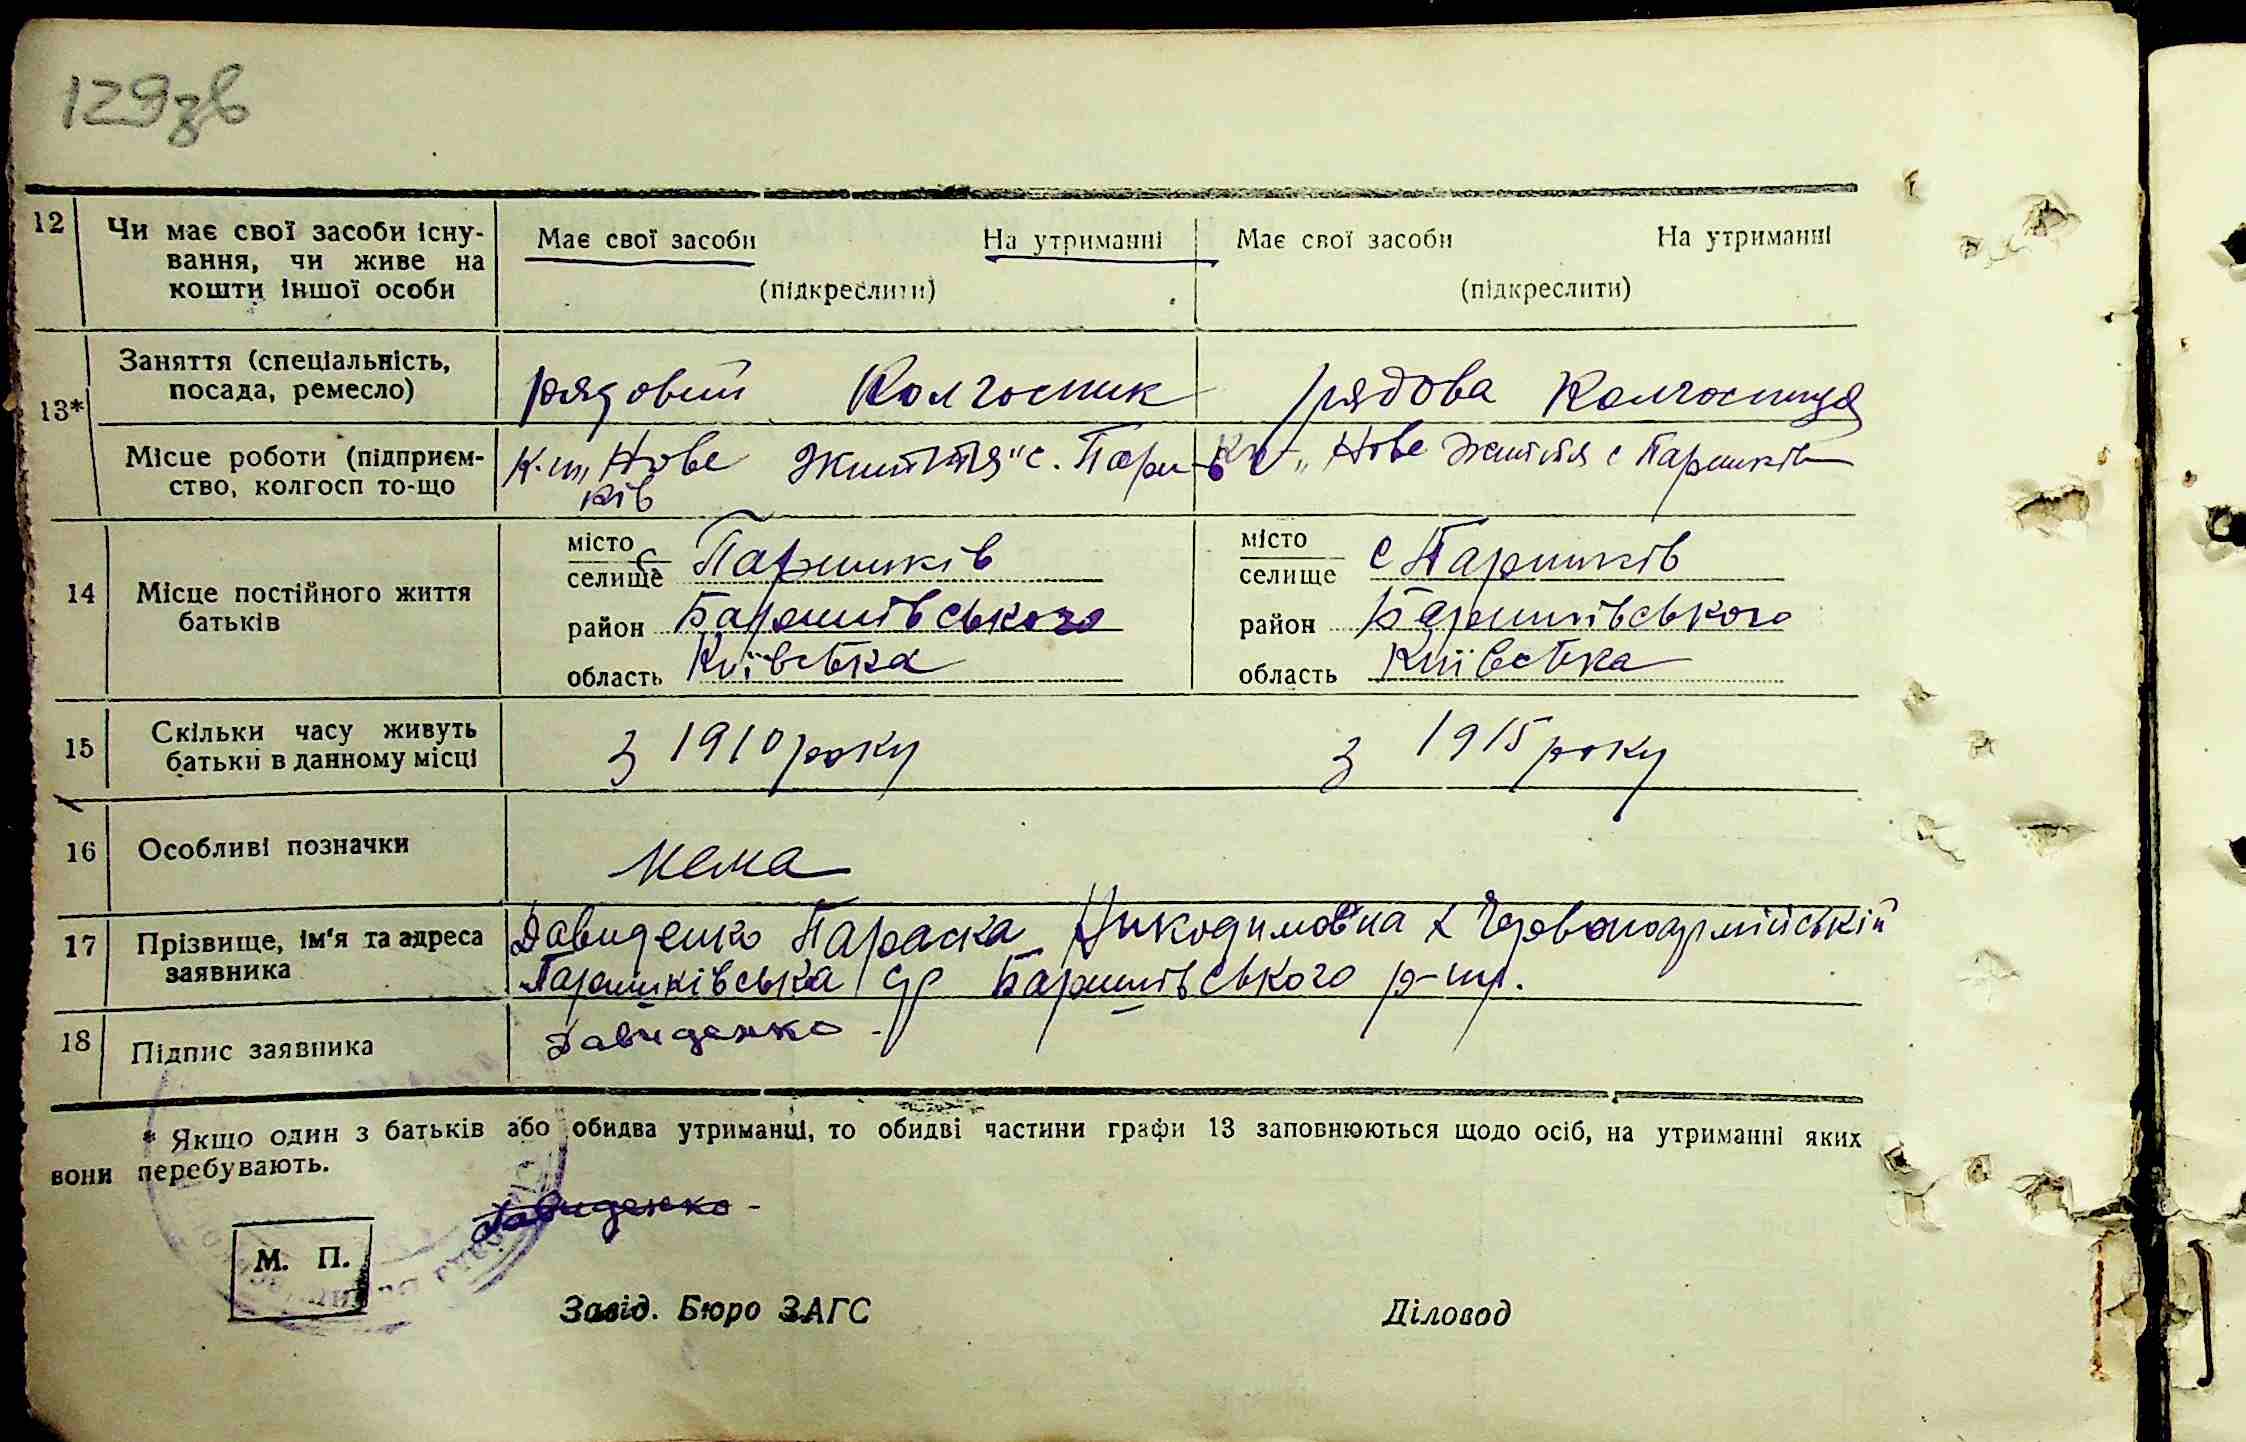 129зв
12 Чи має свої засоби існу- Має свої засоби На утриманні Має свої засоби На утриманні
вання, чи живе на
кошти іншої особи (підкреслити) (підкреслити)
Заняття (спеціальність,
посада, ремесло) рядовий Колгосник рядова Колгосниця
13*
Місце роботи (підприєм- "Нове життя" с. Пари- "Нове життя с Паришків
ство, колгосп то-що ків
місто с Паришків місто с Паришків
селище селище
14 Місце постійного життя
батьків район Баришівського район Баришівського
область Київська область Київська
15 Скільки часу живуть
батьки в данному місці з 1910 року з 1915 року
16 Особливі позначки нема
17 Прізвище, ім'я та адреса Давиденко Параска Никодимовна Червоноармійській
заявника Паришківська с/р Баришівського р-ну.
18 Підпис заявника Давиденко -
* Якщо один з батьків або обидва утриманці, то обидві частини графи 13 заповнюються щодо осіб, на утриманні яких
вони перебувають.
Давиденко -
М. П.
Завід. Бюро ЗАГС Діловод